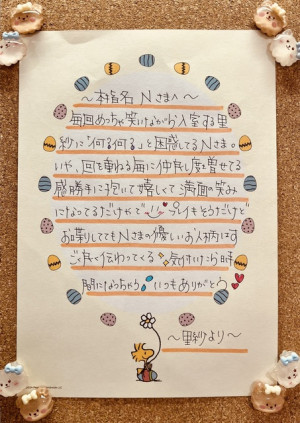 ～本指名 Nさまへ～
毎回めっちゃ笑けながら入室する里
紗に「何る何る」と困惑してるNさま。
いや、回を重ねる毎に仲良し度を増せてる
感勝手に抱いて嬉しくて満面の笑み
になってるだけやで プレイもそうだけど
お喋りしててもNさまの優しいお人柄はす
ごく良く伝わってくる 気付いたら時
間になっちゃう いつもありがとう
～里紗より～